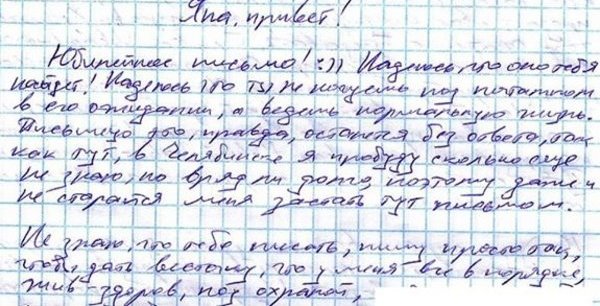 Яна, привет!
Юбилейное письмо! :)) Надеюсь, что оно тебя
найдет! Надеюсь что ты не ночуешь под почтамтом
в его ожидании, а ведешь нормальную жизнь.
Письмецо это, правда, останется без ответа, так
как тут, в Челябинске я пробуду сколько еще
не знаю, но вряд ли долго, поэтому даже и
не старайся меня застать тут письмом.
Не знаю, что тебе писать, пишу просто так,
чтобы дать весточку, что у меня все в порядке,
жив-здоров, под охраной,